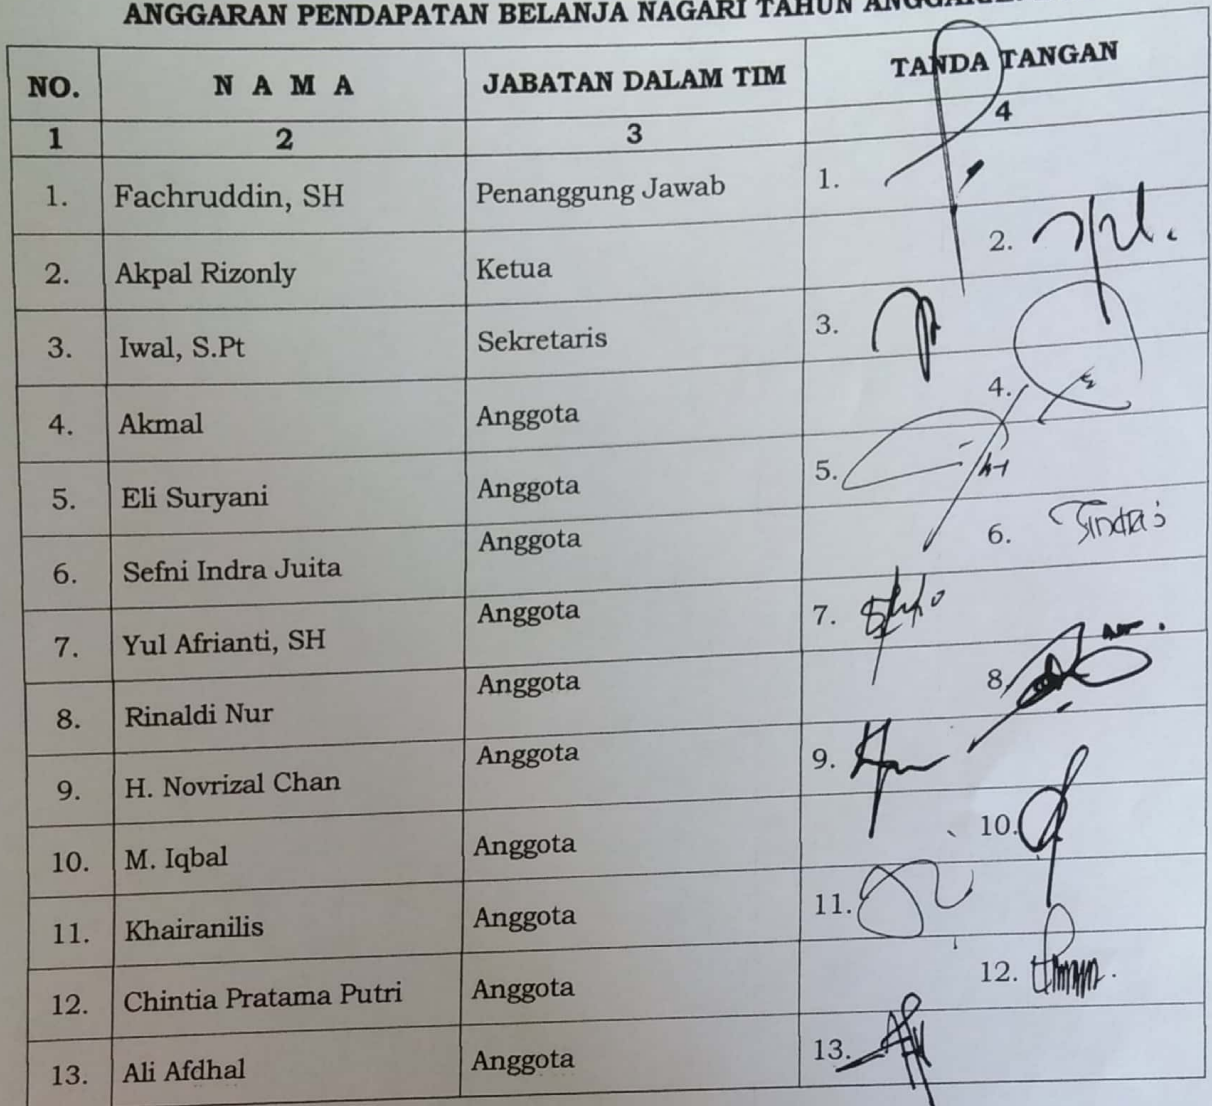 ANGGARAN PENDAPATAN BELANJA NAGARI TAHUN
NO. N A M A JABATAN DALAM TIM TANDA TANGAN
1 2 3 4
1. Fachruddin, SH Penanggung Jawab 1.
2. Akpal Rizonly Ketua 2.
3. Iwal, S.Pt Sekretaris 3.
4. Akmal Anggota 4.
5. Eli Suryani Anggota 5.
6. Sefni Indra Juita Anggota 6.
7. Yul Afrianti, SH Anggota 7.
8. Rinaldi Nur Anggota 8.
9. H. Novrizal Chan Anggota 9.
10. M. Iqbal Anggota 10.
11. Khairanilis Anggota 11.
12. Chintia Pratama Putri Anggota 12.
13. Ali Afdhal Anggota 13.